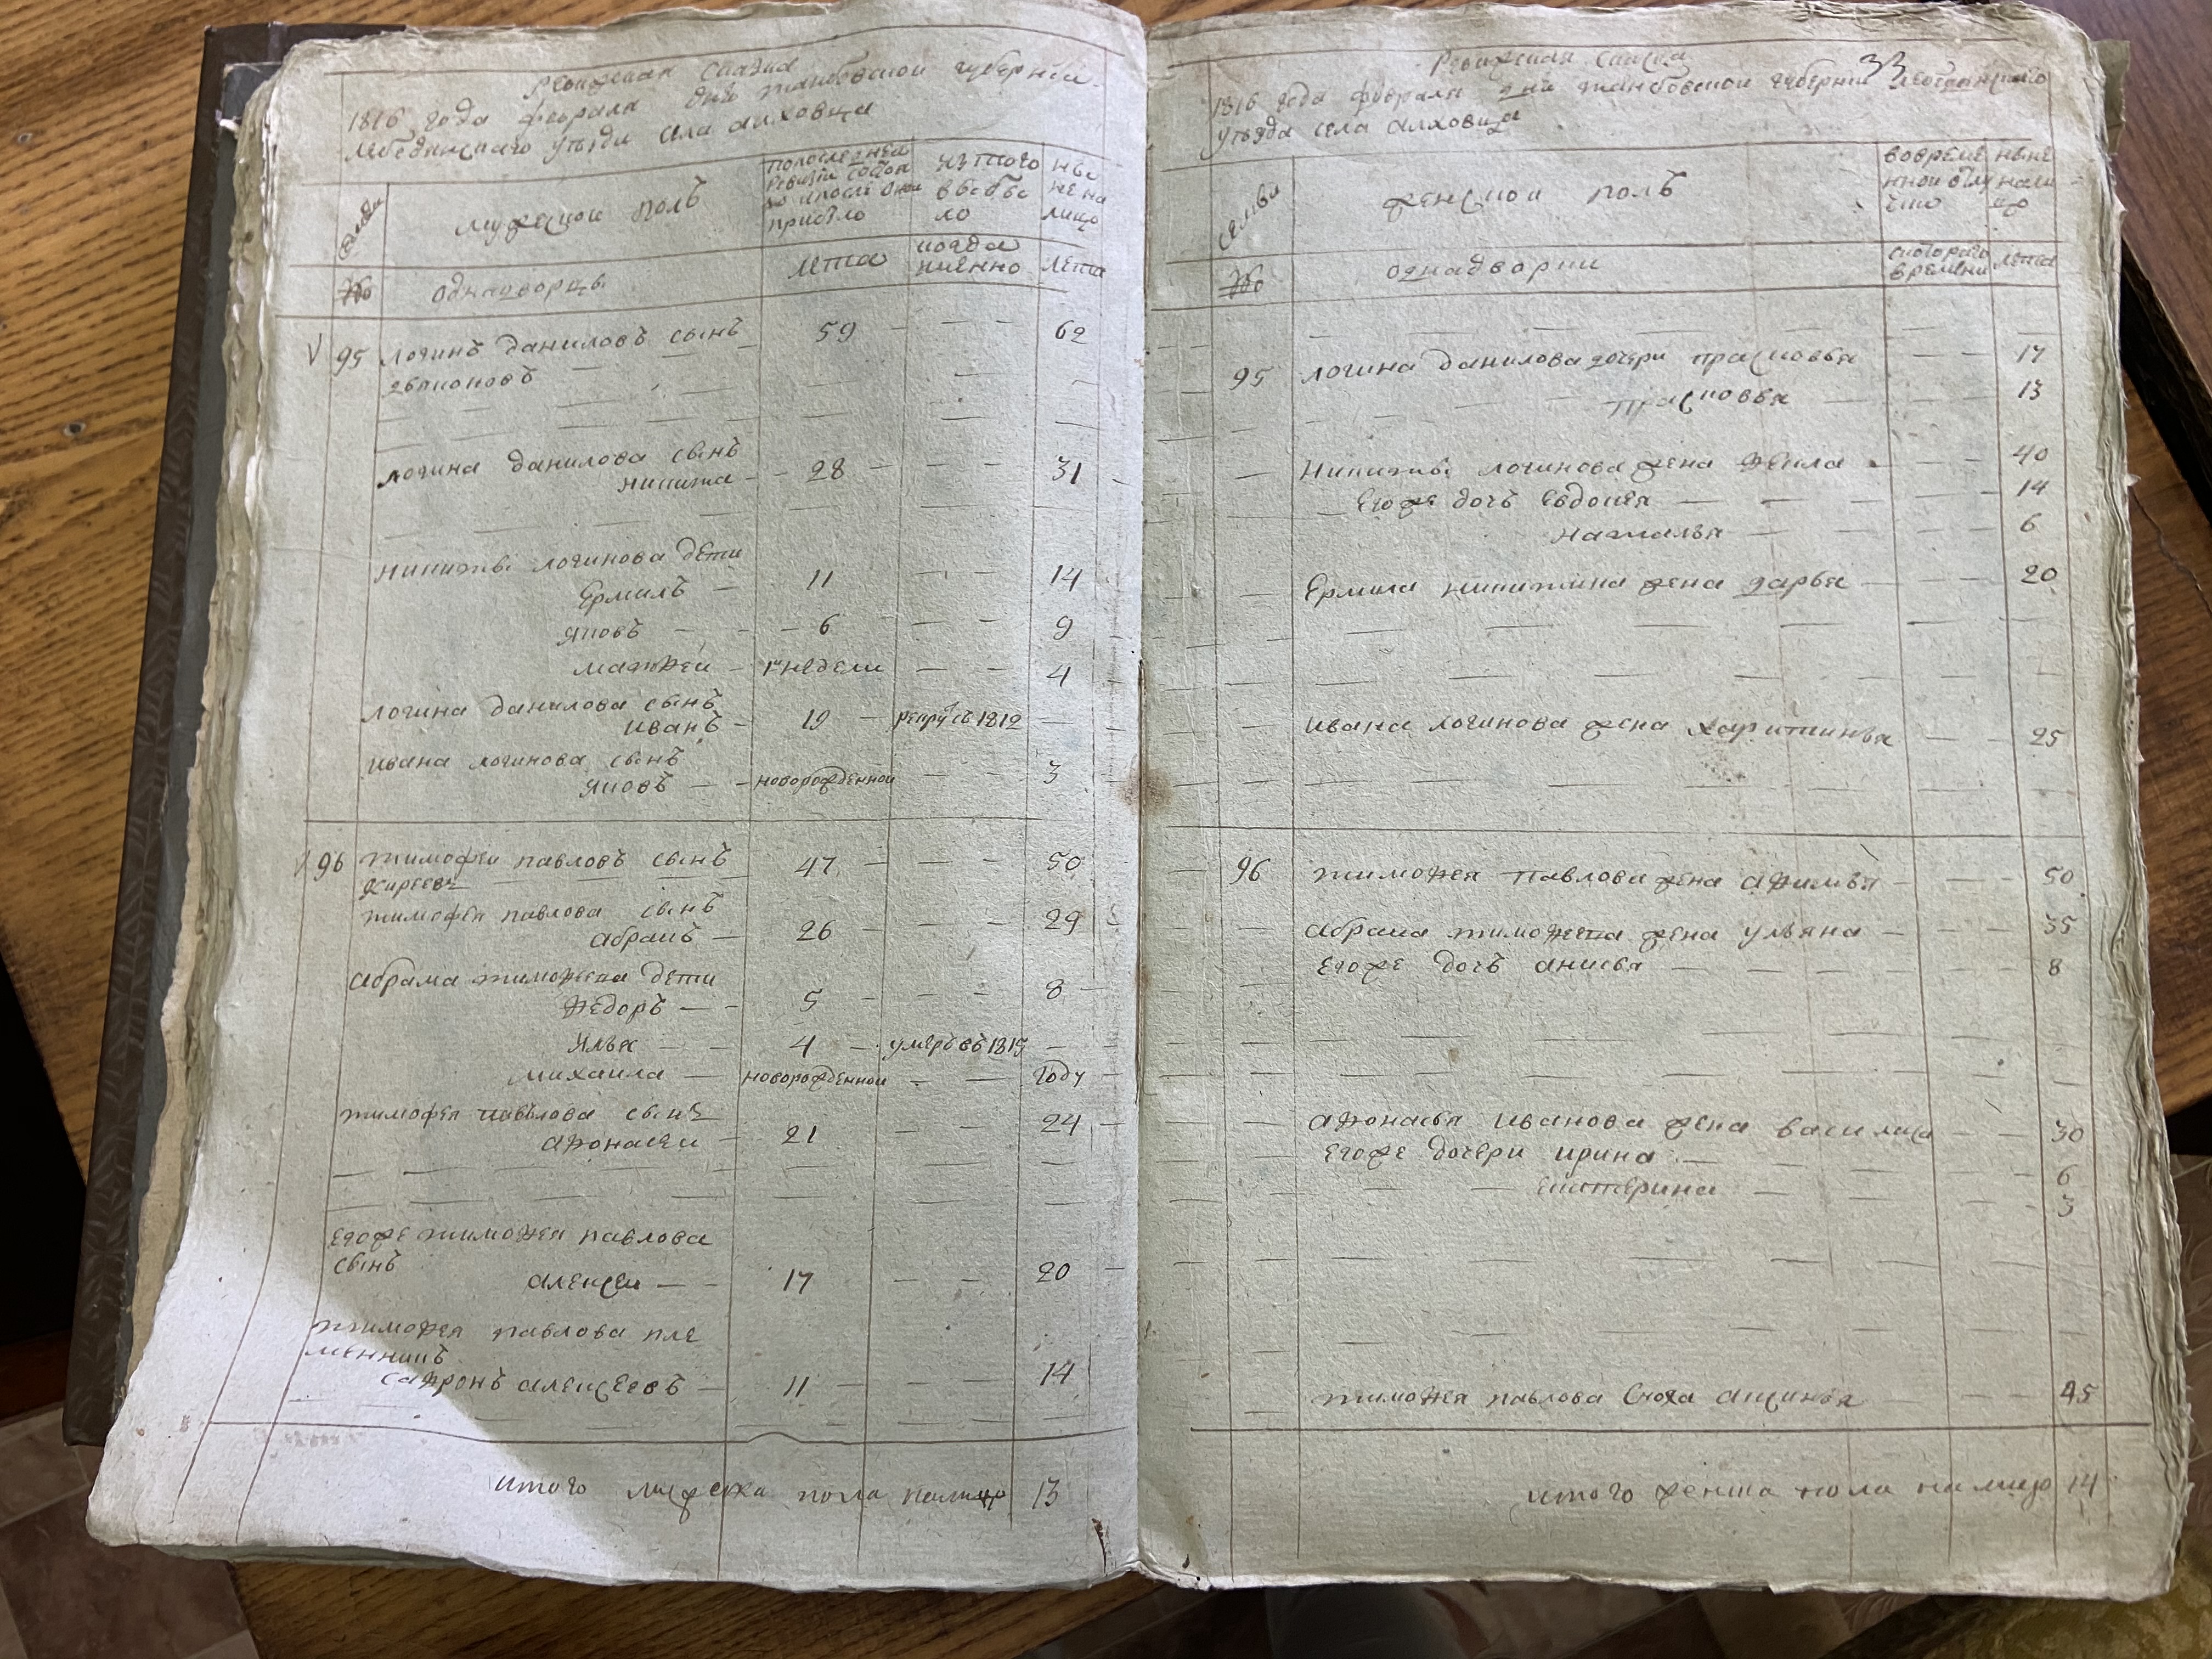 Ревижская Сказка
1816 года февраля дня танбовской губернии
лебедянскаго уѣзда села алховца
семьи
мужеской полъ
попоследней ревизіи состояло ипосле оной прибыло
изтого выбыло
ныне налицо
№
однодворцы
лета
когда именно
лета
95 логинъ даниловъ сынъ 59 62
логина данилова сынъ
никита 28 31
никиты логинова дети
Ермилъ 11 14
яковъ 6 9
матѳей недели 4
логина данилова сынъ
иванъ 19 рекрутъ 1812
ивана логинова сынъ
яковъ новорожденной 3
96 тимофеи павловъ сынъ 47 50
жиреевъ
тимофея павлова сынъ
абрамъ 26 29
абрама тимоѳеева дети
ѳедоръ 5 8
Илья 4 умеръ въ 1815
михаила новорожденной году
тимофея павлова сынъ
аѳонасеи 21 24
егоже тимоѳея павлова
сынъ
алексеи 17 20
тимоѳея павлова пле
мянникъ
саѳронъ алексеевъ 11 14
итого мужска пола налицо 13
33
Ревижская Сказка
1816 года февраля дня танбовской губернии лебедянскаго
уѣзда села алховца
семьи
женской полъ
вовременной отлучке
ныне налицо
№
однадворки
скоторого времени
лета
95 логина данилова дочери прасковья 17
прасковья 13
никиты логинова жена ѳекла 40
Егоже дочь евдокея 14
наталья 6
Ермила никитина жена дарья 20
ивана логинова жена харитинья 25
96 тимоѳея павлова жена аѳимья 50
абрама тимоѳеева жена ульяна 35
Егоже дочь анисья 8
аѳонасья иванова жена василиса 30
Егоже дочери ирина 6
екатерина 3
тимоѳея павлова сноха аксинья 45
итого женска пола налицо 14